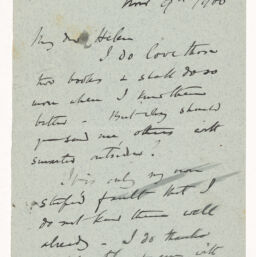 Nov 9th 1900
My dear Helen
I do love those
two books & shall do so
more when I know them
better – But why should
you send me others with
insides?
It is only my own
stupid fault that I
do not know them well
already – I do thank
with